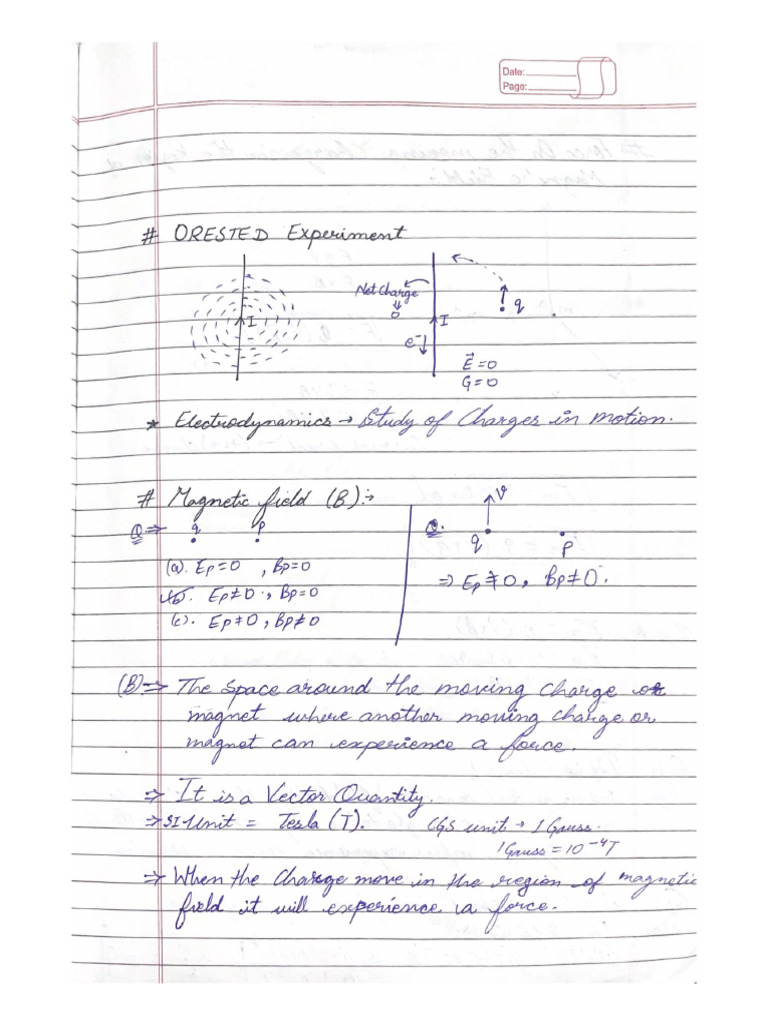 Date:
Page:
# ORESTED Experiment
Net Charge
⇓
0
I
I
e⁻↓
q
E⃗ = 0
G = 0
* Electrodynamics → Study of Charges in motion.
# Magnetic field (B):→
Q ⇒ q p
(a). Ep = 0 , Bp = 0
(b). Ep ≠ 0 , Bp = 0
(c). Ep ≠ 0 , Bp ≠ 0
Q. v
q p
⇒ Ep ≠ 0, Bp ≠ 0.
(B) ⇒ The space around the moving charge or
magnet where another moving charge or
magnet can experience a force.
⇒ It is a Vector Quantity.
⇒ SI Unit = Tesla (T). CGS unit → 1 Gauss.
1 Gauss = 10⁻⁴T
⇒ When the Charge move in the region of magnetic
field it will experience a force.